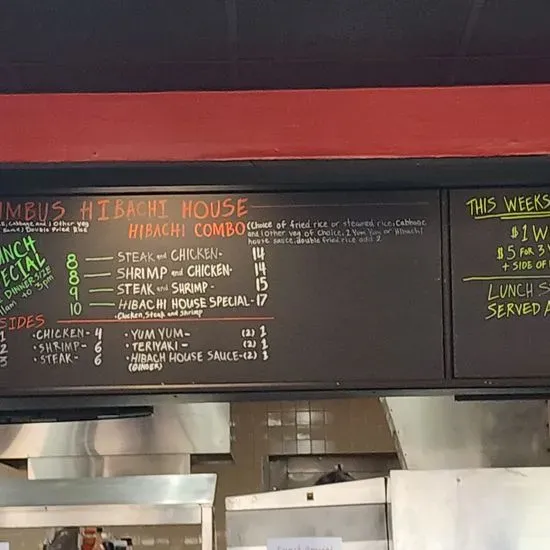 MBUS HIBACHI HOUSE
Cabbage and 1 other veg
Double Fried Rice
HIBACHI COMBO (Choice of fried rice or steamed rice. Cabbage
and 1 other veg of choice. 2 Yum Yum or Hibachi
house sauce. double fried rice add 2
NCH
ECIAL
DINNER SIZE
11am to 3pm
8 — STEAK and CHICKEN- 14
8 — SHRIMP and CHICKEN- 14
9 — STEAK and SHRIMP - 15
10 — HIBACHI HOUSE SPECIAL- 17
·Chicken, Steak and Shrimp
SIDES
1 ·CHICKEN- 4 ·YUM YUM- (2) 1
2 ·SHRIMP- 6 ·TERIYAKI- (2) 1
3 ·STEAK- 6 ·HIBACH HOUSE SAUCE-(2) 1
(DINNER)
THIS WEEKS
$1 W
$5 FOR 3
+ SIDE OF
LUNCH S
SERVED A